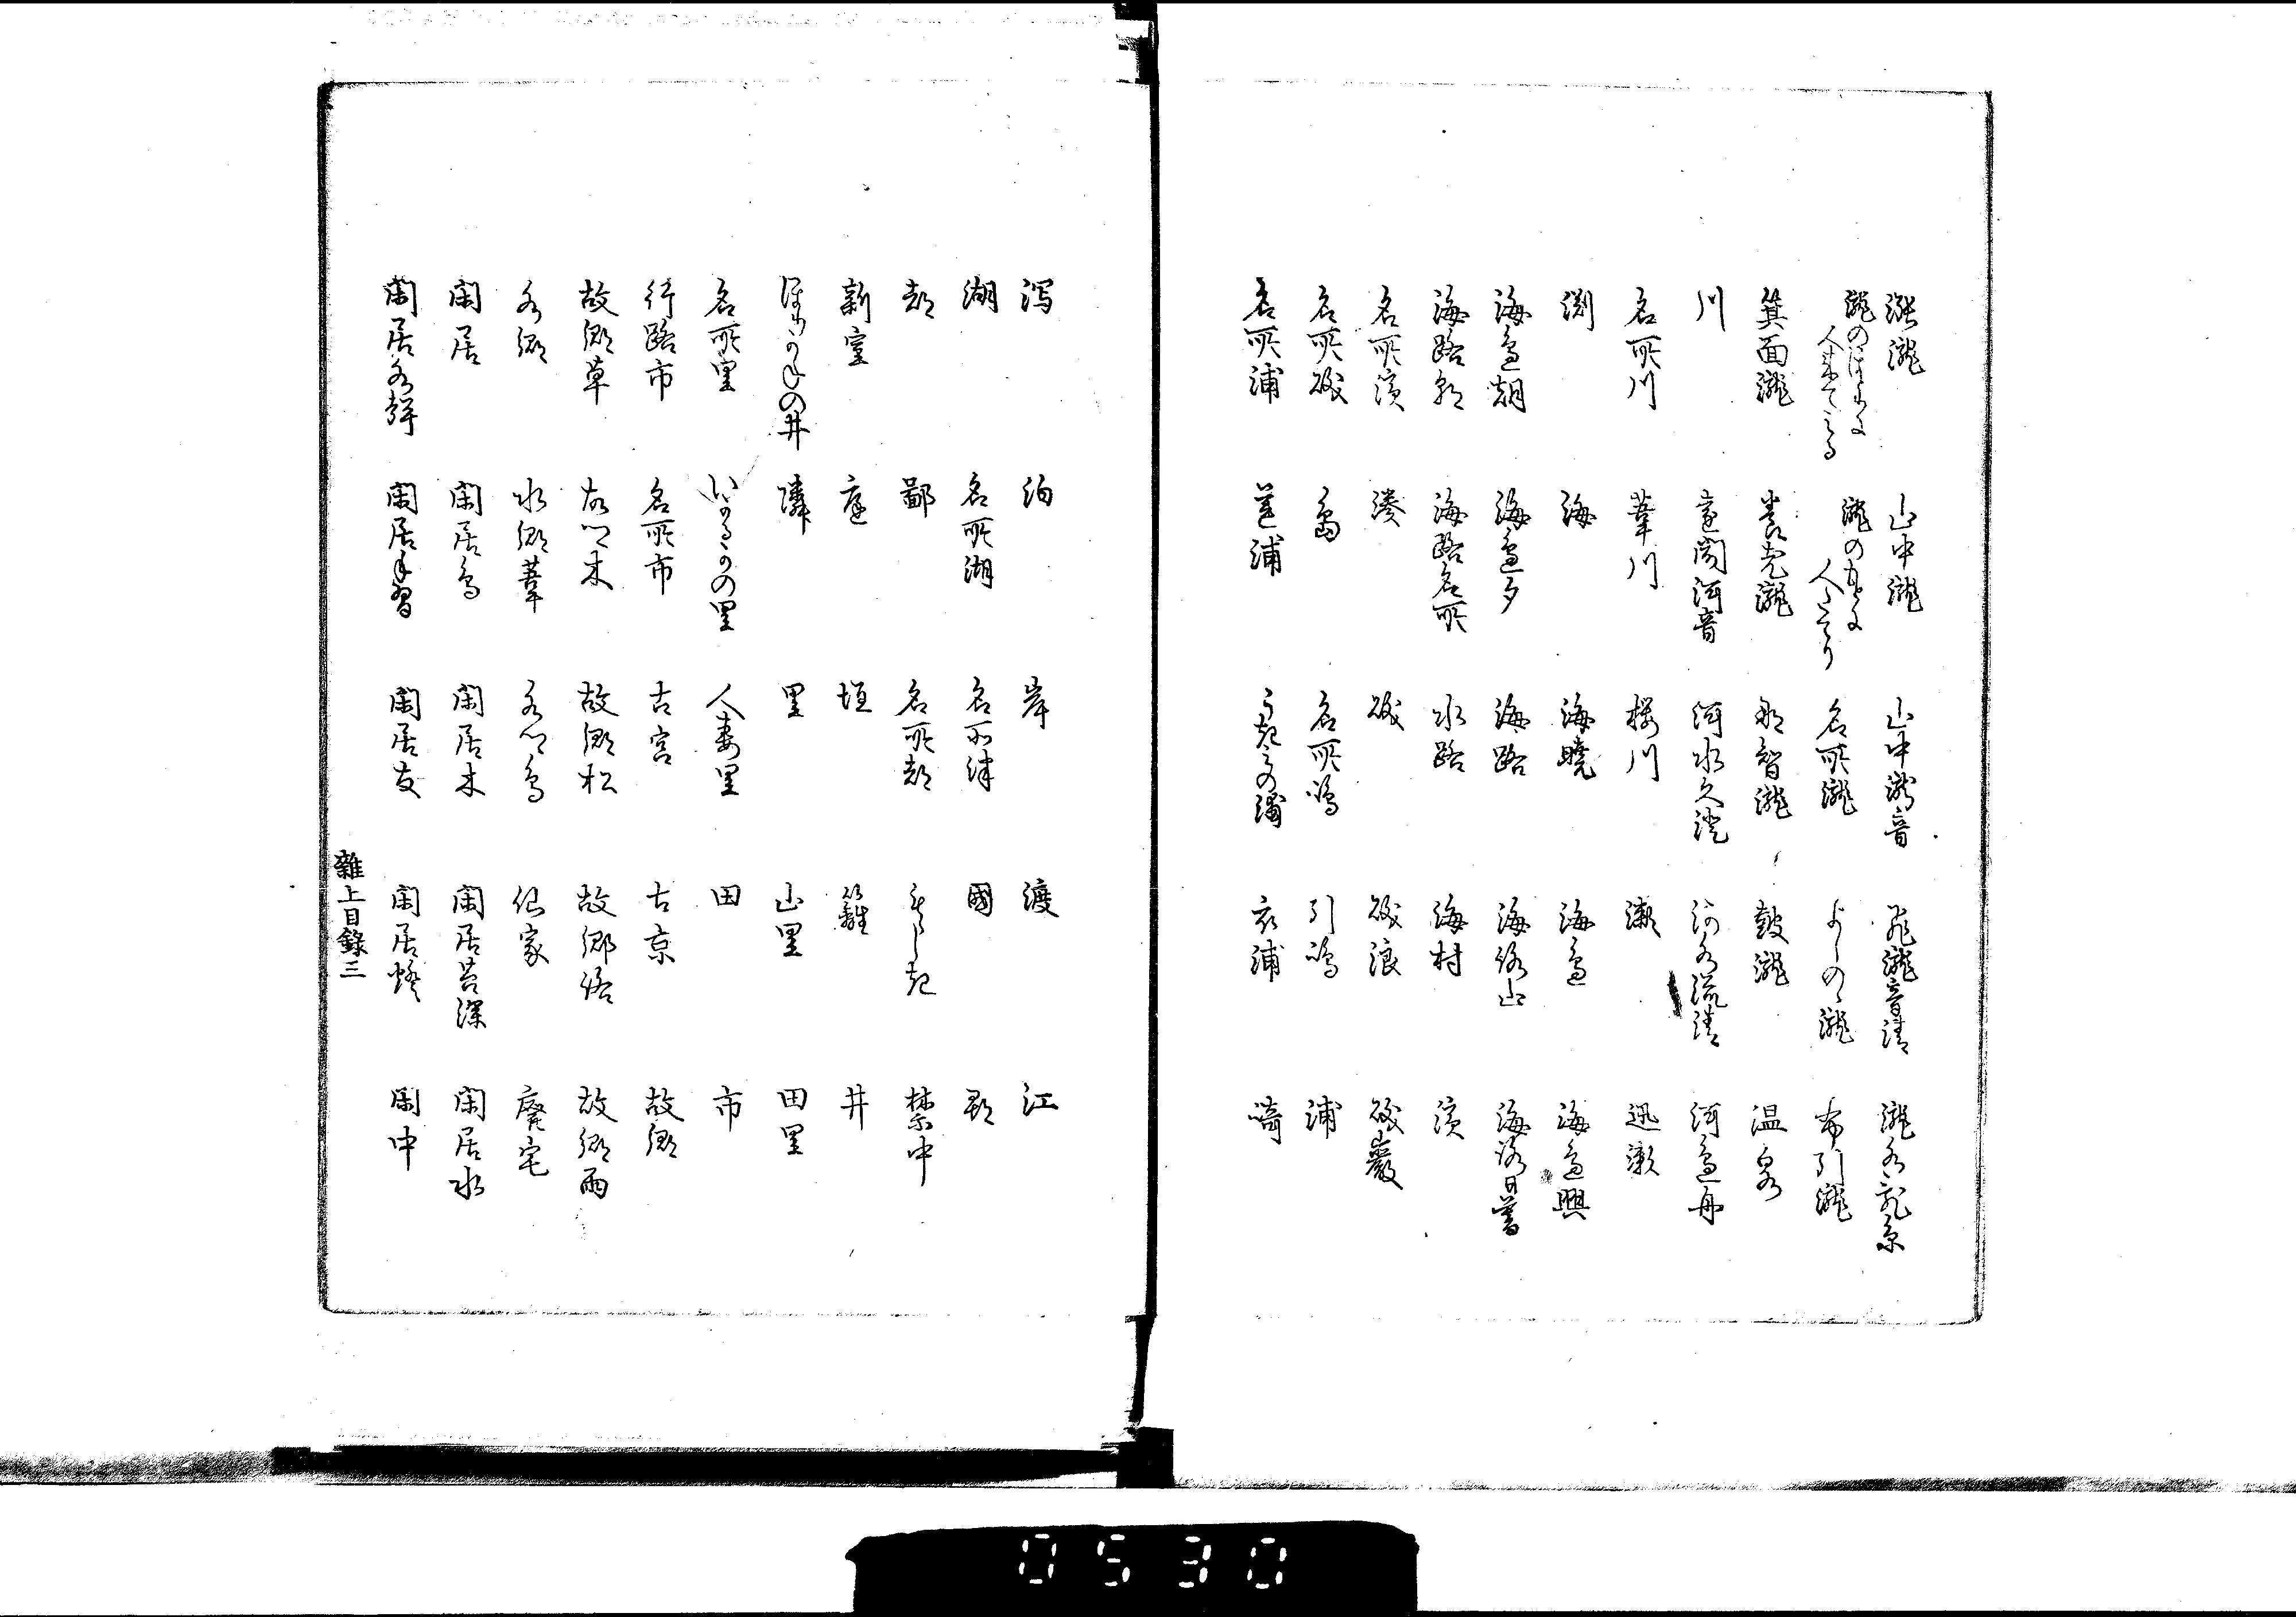 滝 山中瀧 山中瀧音 飛瀧音清 瀧水乱糸
瀧のほとりに人来てみる 瀧のもとに人 名所瀧 よしのゝ瀧 布引瀧
箕面瀧 養老瀧 那智瀧 鼓瀧 温泉
川 遠聞河音 河水久澄 河水流清 河邊舟
名所川 葦川 桜川 瀬 迅瀬
渕 海 海暁 海邊 海邊興
海邊朝 海邊夕 海路 海路山 海路日暮
海路朝 海路名所 水路 海村 濱
名所濱 湊 礒 礒浪 礒巌
名所礒 島 名所嶋 引嶋 浦
名所浦 蘆浦 の浦 衣浦 崎
潟 泊 岸 渡 江
湖 名所湖 名所津 國 郡
都 鄙 名所都 禁中
新室 庭 垣 籬 井
ほりかねの井 隣 里 山里 田里
名所里 いるかの里 人妻里 田 市
行路市 名所市 古宮 古京 故郷
故郷草 故郷木 故郷松 故郷路 故郷雨
水郷 水郷葦 水郷鳥 仙家 廃宅
閑居 閑居鳥 閑居木 閑居苔深 閑居水
閑居水聲 閑居手習 閑居友 閑居燈 閑中
雜上目錄三
0530